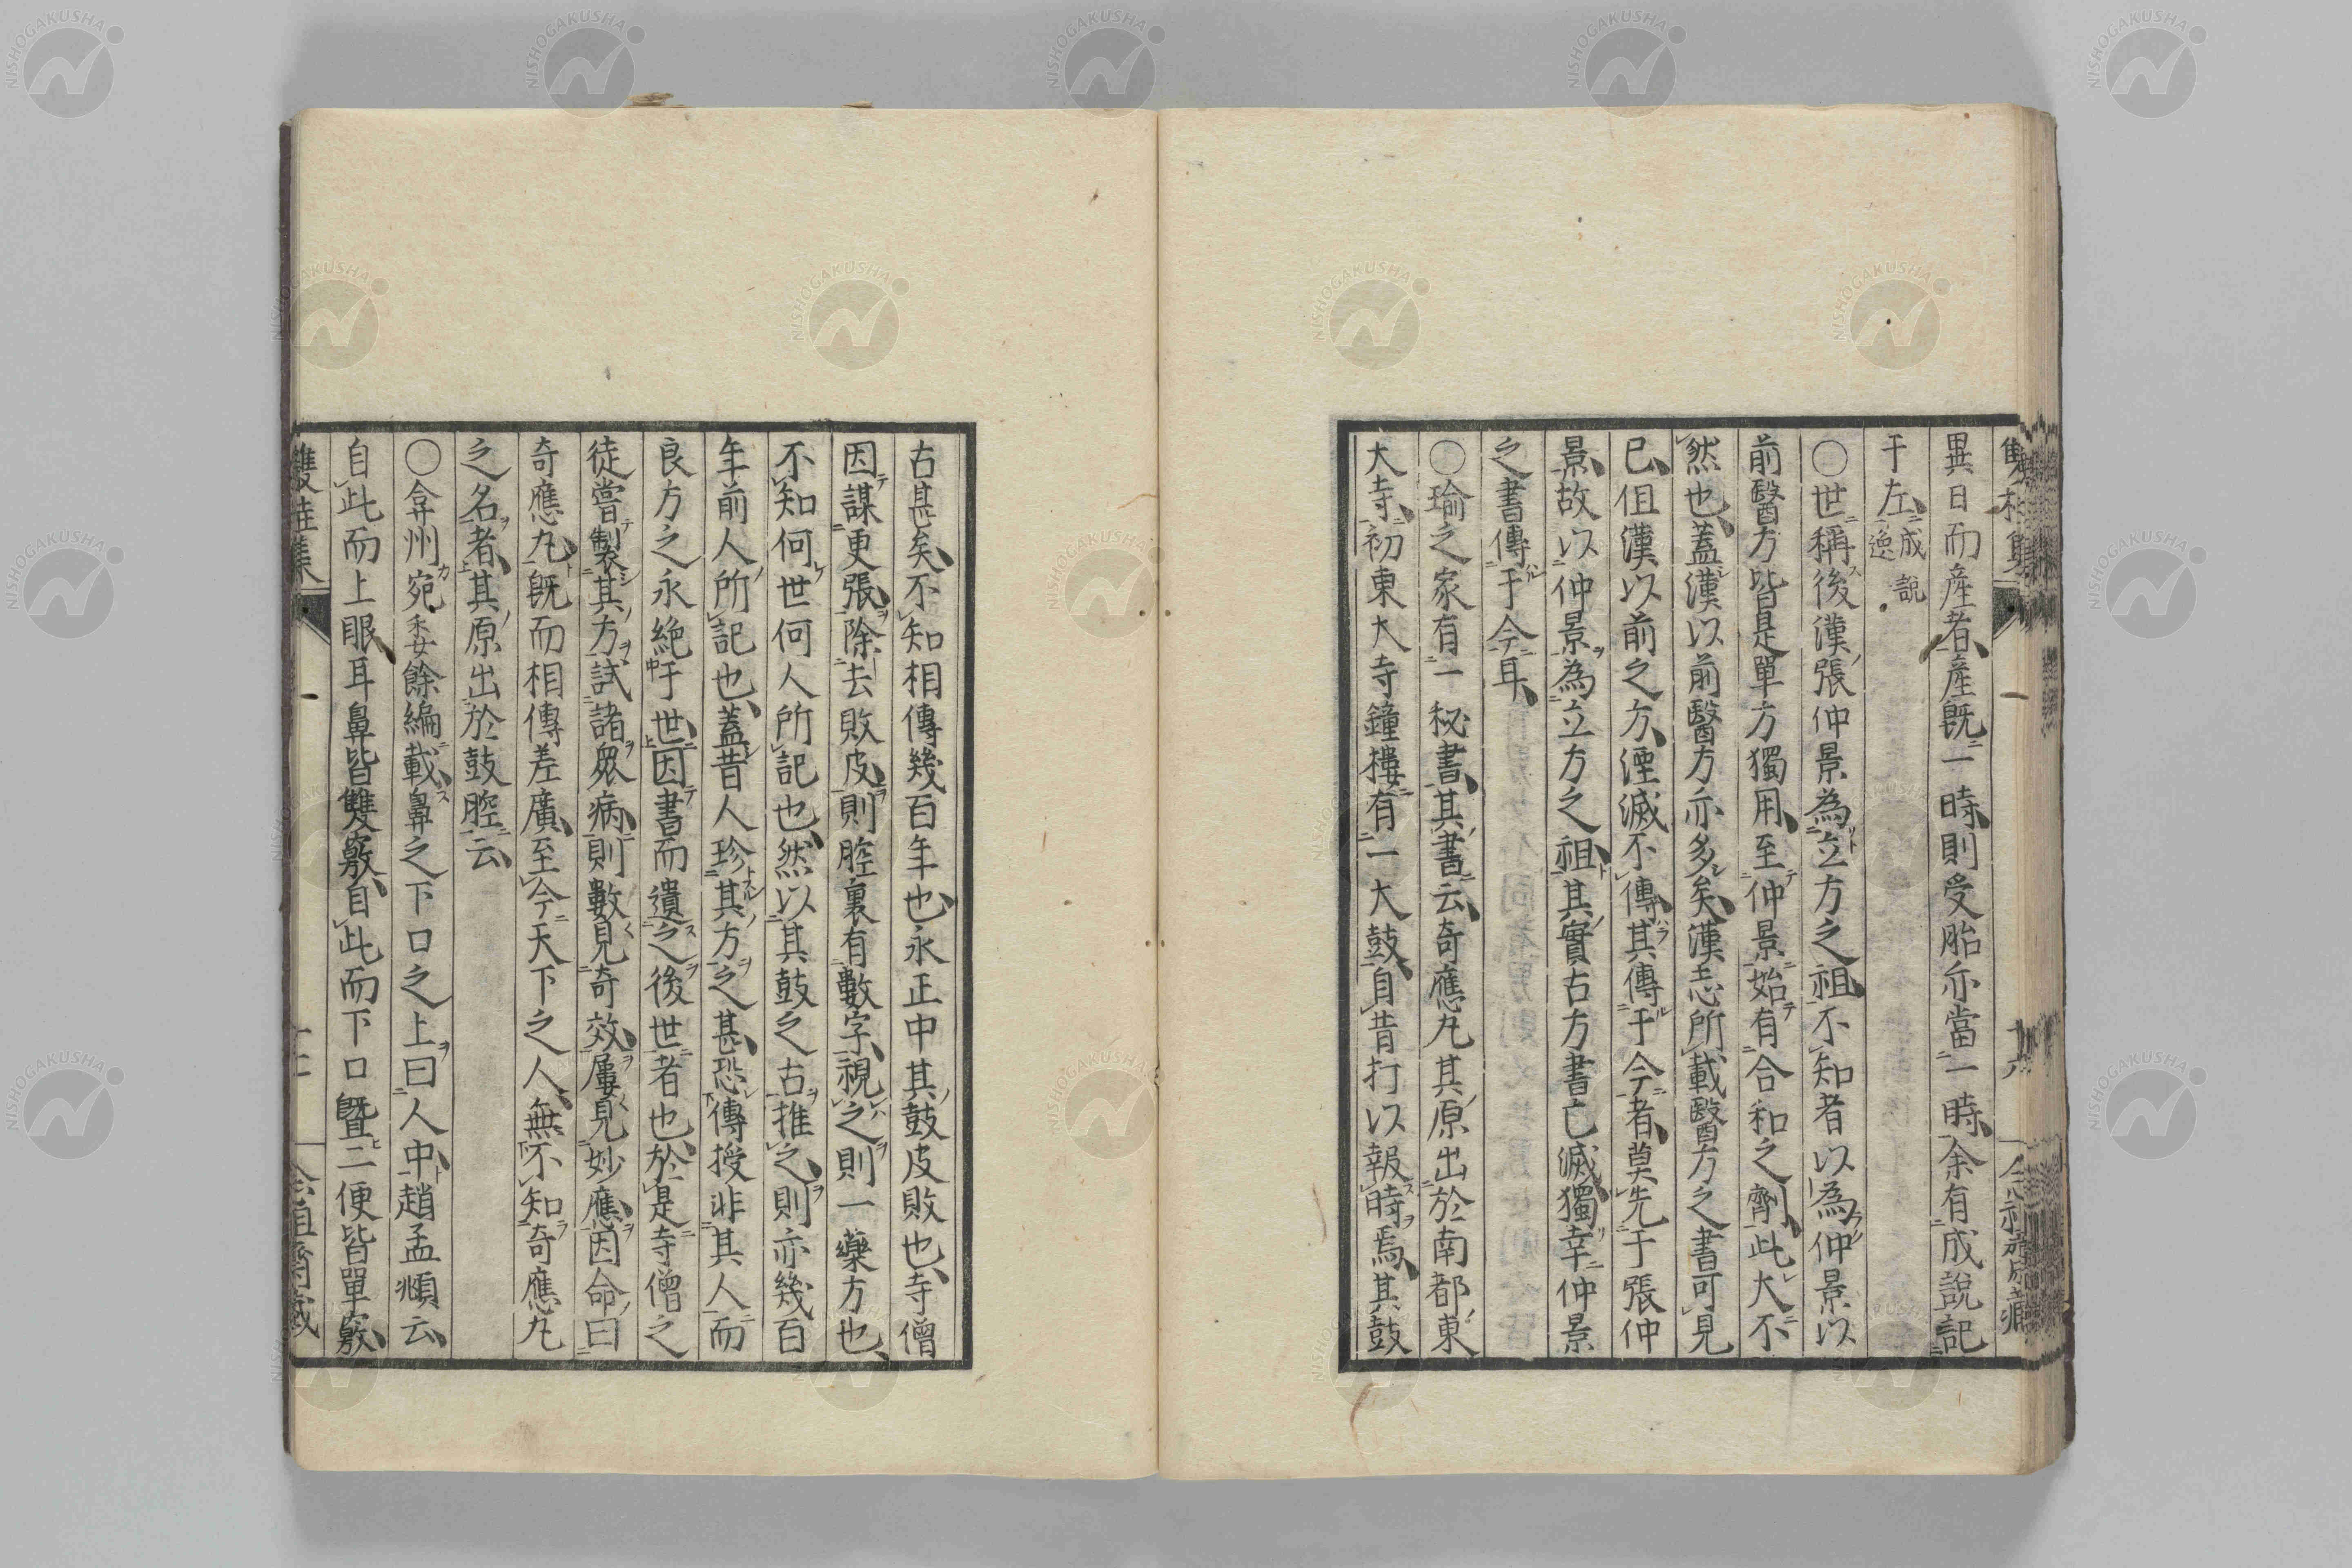 異日而産者産既一時則受胎亦當一時余有成説記
于左成説逸
〇世稱後漢張仲景為立方之祖不知者以為仲景以
前醫方皆是單方獨用至仲景始有合和之劑此大不
然也蓋漢以前醫方亦多矣漢志所載醫方之書可見
已但漢以前之方湮滅不傳其傳于今者莫先于張仲
景故以仲景為立方之祖其實古方書亡滅獨幸仲景
之書傳于今耳
〇瑜之家有一秘書其書云奇應丸其原出於南都東
大寺初東大寺鐘樓有一大鼓自昔打以報時焉其鼓
古甚矣不知相傳幾百年也永正中其鼓皮敗也寺僧
因謀更張除去敗皮則腔裏有數字視之則一藥方也
不知何世何人所記也然以其鼓之古推之則亦幾百
年前人所記也蓋昔人珍其方之甚恐傳授非其人而
良方之永絶于世因書而遺之後世者也於是寺僧之
徒嘗製其方試諸衆病則數見奇效屢見妙應因命曰
奇應丸既而相傳差廣至今天下之人無不知奇應丸
之名者其原出於鼓腔云
〇弇州宛委餘編載鼻之下口之上曰人中趙孟頫云
自此而上眼耳鼻皆雙竅自此而下口曁二便皆單竅
雙桂集
NISHOGAKUSHA